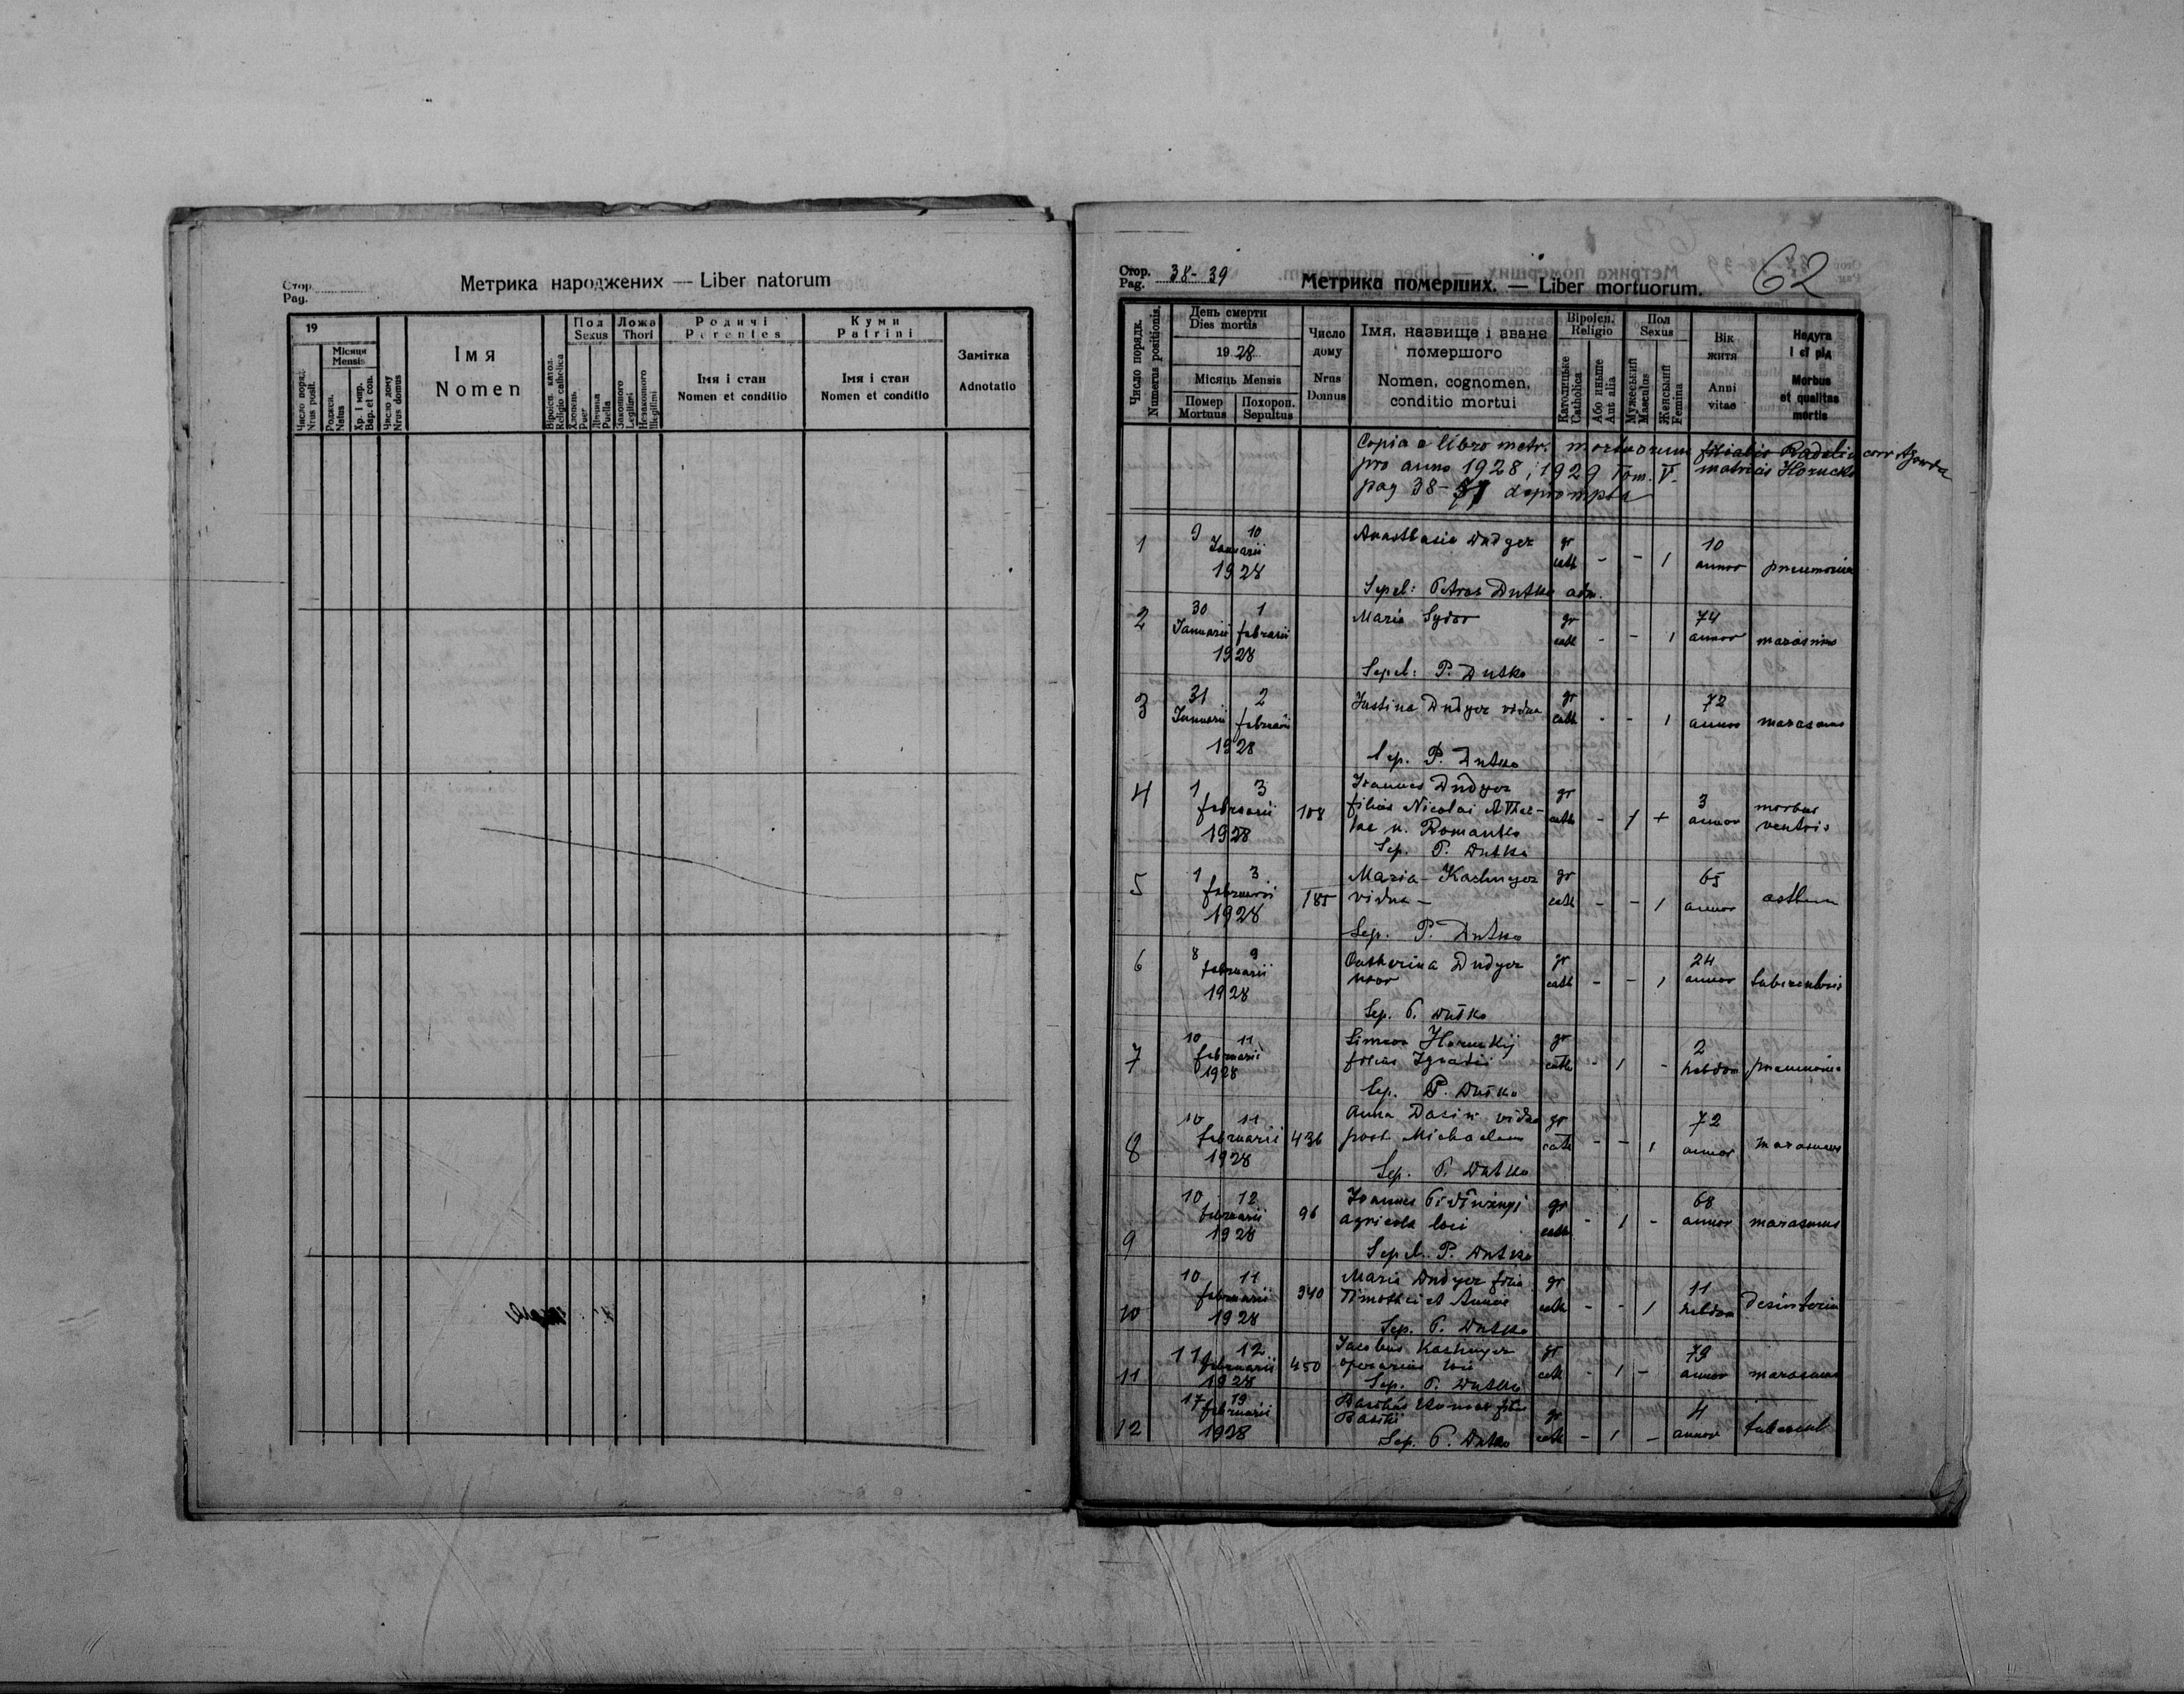 Стор.
Pag.
Метрика народжених — Liber natorum
19
Місяця
Mensis
Число поряд.
Nrus posit.
Роджен.
Natus
Хр. і мир.
Bap. et con.
Число дому
Nrus domus
Імя
Nomen
Віроісп. катол.
Religio catholica
Пол
Sexus
Хлопець
Puer
Дївчина
Puella
Ложа
Thori
Законного
Legitimi
Незаконного
Illegitimi
Родичі
Parentes
Імя і стан
Nomen et conditio
Куми
Patrini
Імя і стан
Nomen et conditio
Замітка
Adnotatio
Стор.
Pag. 38-39
Метрика померших. — Liber mortuorum.
62
Число порядк.
Numerus positionis.
День смерти
Dies mortis
1928
Місяць Mensis
Помер
Mortuus
Похорон.
Sepultus
Число
дому
Nrus
Domus
Імя, назвище і зване
помершого
Nomen, cognomen,
conditio mortui
Віроісп.
Religio
Католицьке
Catholica
Або иньше
Aut alia
Пол
Sexus
Мужеський
Masculus
Женський
Femina
Вік
житя
Anni
vitae
Недуга
і єї рід
Morbus
et qualitas
mortis
Copia e libro metr. mortuorum filialis
pro anno 1928, 1929 Tom. V. matricis Horucko
pag 38- deprompta
1 9 10 Anasthasia Dudyez gr 10
Januarii cath - - 1 annor pneumonia
1928
Sepel: Petrus Dutko adm.
2 30 1 Maria Sydor gr 74
Januarii februarii cath - - 1 annor marasmus
1928
Sepel: P. Dutko
3 31 2 Justina Dudyez vidua gr 72
Januarii februarii cath - - 1 annor marasmus
1928
Sep. P. Dutko
4 1 3 Ioannes Dudyez gr 3
februarii 108 filius Nicolai et Thec- cath - 1 + annor morbus
1928 lae n. Romanko ventris
Sep. P. Dutko
5 1 3 Maria - gr 65
februarii 185 vidua - cath - - 1 annor asthma
1928
Sep. P. Dutko
6 8 9 Catherina Dudyez gr 24
februarii uxor cath - - 1 annor
1928
Sep. P. Dutko
7 10 11 Simeon Horuckij gr 2
februarii filius Ignatii cath - 1 - hebdom pneumonia
1928
Sep. P. Dutko
8 10 11 Anna vidua gr 72
februarii 436 post Michaelem cath - - 1 annor marasmus
1928
Sep. P. Dutko
9 10 12 Ioannes gr 68
februarii 96 agricola loci cath - 1 - annor marasmus
1928
Sepel. P. Dutko
10 10 11 Maria Dudyez filia gr 11
februarii 340 Timothei et Annae cath - - 1 hebdom
1928
Sep. P. Dutko
11 11 12 Jacobus gr 79
februarii 450 operarius loci cath - 1 - annor marasmus
1928 Sep. P. Dutko
12 17 19 filius gr 4
februarii Basilii cath - 1 - annor tubercul
1928 Sep. P. Dutko